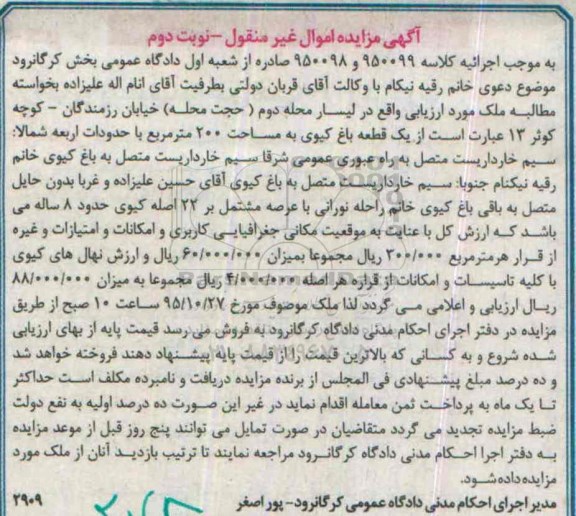 آگهی مزایده اموال غیر منقول -نوبت دوم
به موجب اجرائیه کلاسه ۹۵۰۰۹۹ و ۹۵۰۰۹۸ صادره از شعبه اول دادگاه عمومی بخش کرگانرود
موضوع دعوی خانم رقیه نیکام با وکالت آقای قربان دولتی بطرفیت آقای انام اله علیزاده بخواسته
مطالبه ملک مورد ارزیابی واقع در لیسار محله دوم ( حجت محله) خیابان رزمندگان - کوچه
کوثر ۱۳ عبارت است از یک قطعه باغ کیوی به مساحت ۲۰۰ مترمربع با حدودات اربعه شمالا:
سیم خارداریست متصل به راه عبوری عمومی شرقا سیم خارداریست متصل به باغ کیوی خانم
رقیه نیکنام جنوبا: سیم خارداریست متصل به باغ کیوی آقای حسین علیزاده و غربا بدون حایل
متصل به باقی باغ کیوی خانم راحله نورانی با عرصه مشتمل بر ۲۲ اصله کیوی حدود ۸ ساله می
باشد که ارزش کل با عنایت به موقعیت مکانی جغرافیایی کاربری و امکانات و امتیازات و غیره
از قرار هرمترمربع ۳۰۰/۰۰۰ ریال مجموعا بمیزان ۶۰/۰۰۰/۰۰۰ ریال و ارزش نهال های کیوی
با کلیه تاسیسات و امکانات از قراره هر اصله ۴/۰۰۰/۰۰۰ ریال مجموعا به میزان ۸۸/۰۰۰/۰۰۰
ریال ارزیابی و اعلامی می گردد لذا ملک موصوف مورخ ۹۵/۱۰/۲۷ ساعت ۱۰ صبح از طریق
مزایده در دفتر اجرای احکام مدنی دادگاه کرگانرود به فروش می رسد قیمت پایه از بهای ارزیابی
شده شروع و به کسانی که بالاترین قیمت را از قیمت پایه پیشنهاد دهند فروخته خواهد شد
و ده درصد مبلغ پیشنهادی فی المجلس از برنده مزایده دریافت و نامبرده مکلف است حداکثر
تا یک ماه به پرداخت ثمن معامله اقدام نماید در غیر این صورت ده درصد اولیه به نفع دولت
ضبط مزایده تجدید می گردد متقاضیان در صورت تمایل می توانند پنج روز قبل از موعد مزایده
به دفتر اجرا احکام مدنی دادگاه کرگانرود مراجعه نمایند تا ترتیب بازدید آنان از ملک مورد
مزایده داده شود.
مدیر اجرای احکام مدنی دادگاه عمومی کرگانرود- پور اصغر ۲۹۰۹